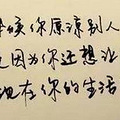 候你原谅别人
因为你还想让
现在你的生活